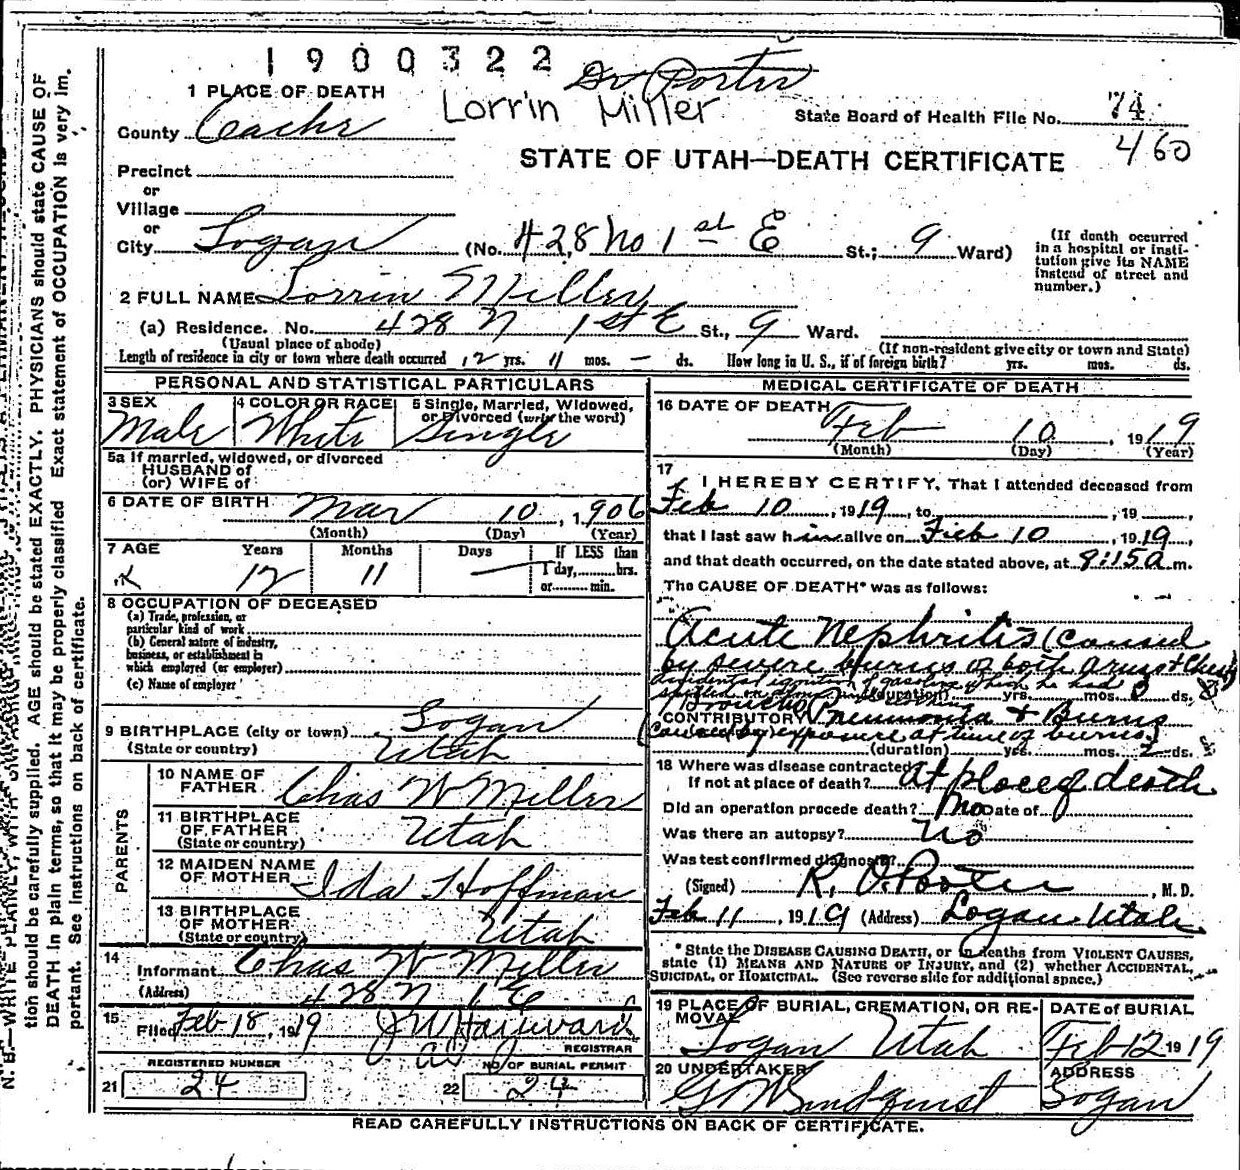 1900322
Dr Porter
Lorrin Miller
1 PLACE OF DEATH
County Cache
State Board of Health File No. 74
460
STATE OF UTAH—DEATH CERTIFICATE
Precinct
or
Village
or
City Logan (No. 428 No 1st E St.; 9 Ward)
(If death occurred in a hospital or institution give its NAME instead of street and number.)
2 FULL NAME Lorrin Miller
(a) Residence. No. 428 N 1st E St., 9 Ward.
(Usual place of abode) (If non-resident give city or town and State)
Length of residence in city or town where death occurred 12 yrs. 11 mos. — ds. How long in U. S., if of foreign birth? yrs. mos. ds.
PERSONAL AND STATISTICAL PARTICULARS
3 SEX Male
4 COLOR OR RACE White
5 Single, Married, Widowed, or Divorced (write the word) Single
5a If married, widowed, or divorced
HUSBAND of
(or) WIFE of
6 DATE OF BIRTH Mar 10, 1906
(Month) (Day) (Year)
7 AGE Years Months Days If LESS than
12 11 — 1 day, hrs.
or min.
8 OCCUPATION OF DECEASED
(a) Trade, profession, or
particular kind of work
(b) General nature of industry,
business, or establishment in
which employed (or employer)
(c) Name of employer
9 BIRTHPLACE (city or town) Logan
(State or country) Utah
PARENTS
10 NAME OF FATHER Chas W Miller
11 BIRTHPLACE OF FATHER (State or country) Utah
12 MAIDEN NAME OF MOTHER Ida Hoffman
13 BIRTHPLACE OF MOTHER (State or country) Utah
14
Informant Chas W Miller
(Address) 428 N 1 E
15
Filed Feb 18, 1919
REGISTRAR
REGISTERED NUMBER
21 24
NO OF BURIAL PERMIT
22 24
MEDICAL CERTIFICATE OF DEATH
16 DATE OF DEATH Feb 10, 1919
(Month) (Day) (Year)
17
I HEREBY CERTIFY, That I attended deceased from
Feb 10, 1919, to , 19 ,
that I last saw him alive on Feb 10, 1919,
and that death occurred, on the date stated above, at 9:15 a m.
The CAUSE OF DEATH* was as follows:
Acute Nephritis (caused
by severe burns of both arms & Chest
accidental ignition of gasoline which he had
spilled on
(duration) yrs. mos. ds. 8
CONTRIBUTORY Broncho Pneumonia & Burns
(caused by exposure at time of burns)
(duration) yrs. mos. 2 ds.
18 Where was disease contracted
If not at place of death? at place of death
Did an operation precede death? No Date of
Was there an autopsy? No
Was test confirmed diagnosis?
(Signed) R. O. Porter, M. D.
Feb 11, 1919 (Address) Logan Utah
* State the DISEASE CAUSING DEATH, or in deaths from VIOLENT CAUSES,
state (1) MEANS AND NATURE OF INJURY, and (2) whether ACCIDENTAL,
SUICIDAL, or HOMICIDAL. (See reverse side for additional space.)
19 PLACE OF BURIAL, CREMATION, OR REMOVAL Logan Utah
DATE of BURIAL Feb 12 1919
20 UNDERTAKER
ADDRESS Logan
READ CAREFULLY INSTRUCTIONS ON BACK OF CERTIFICATE.
N. B.—WRITE PLAINLY, WITH
tion should be carefully supplied. AGE should be stated EXACTLY. PHYSICIANS should state CAUSE OF
DEATH in plain terms, so that it may be properly classified Exact statement of OCCUPATION is very im-
portant. See instructions on back of certificate.